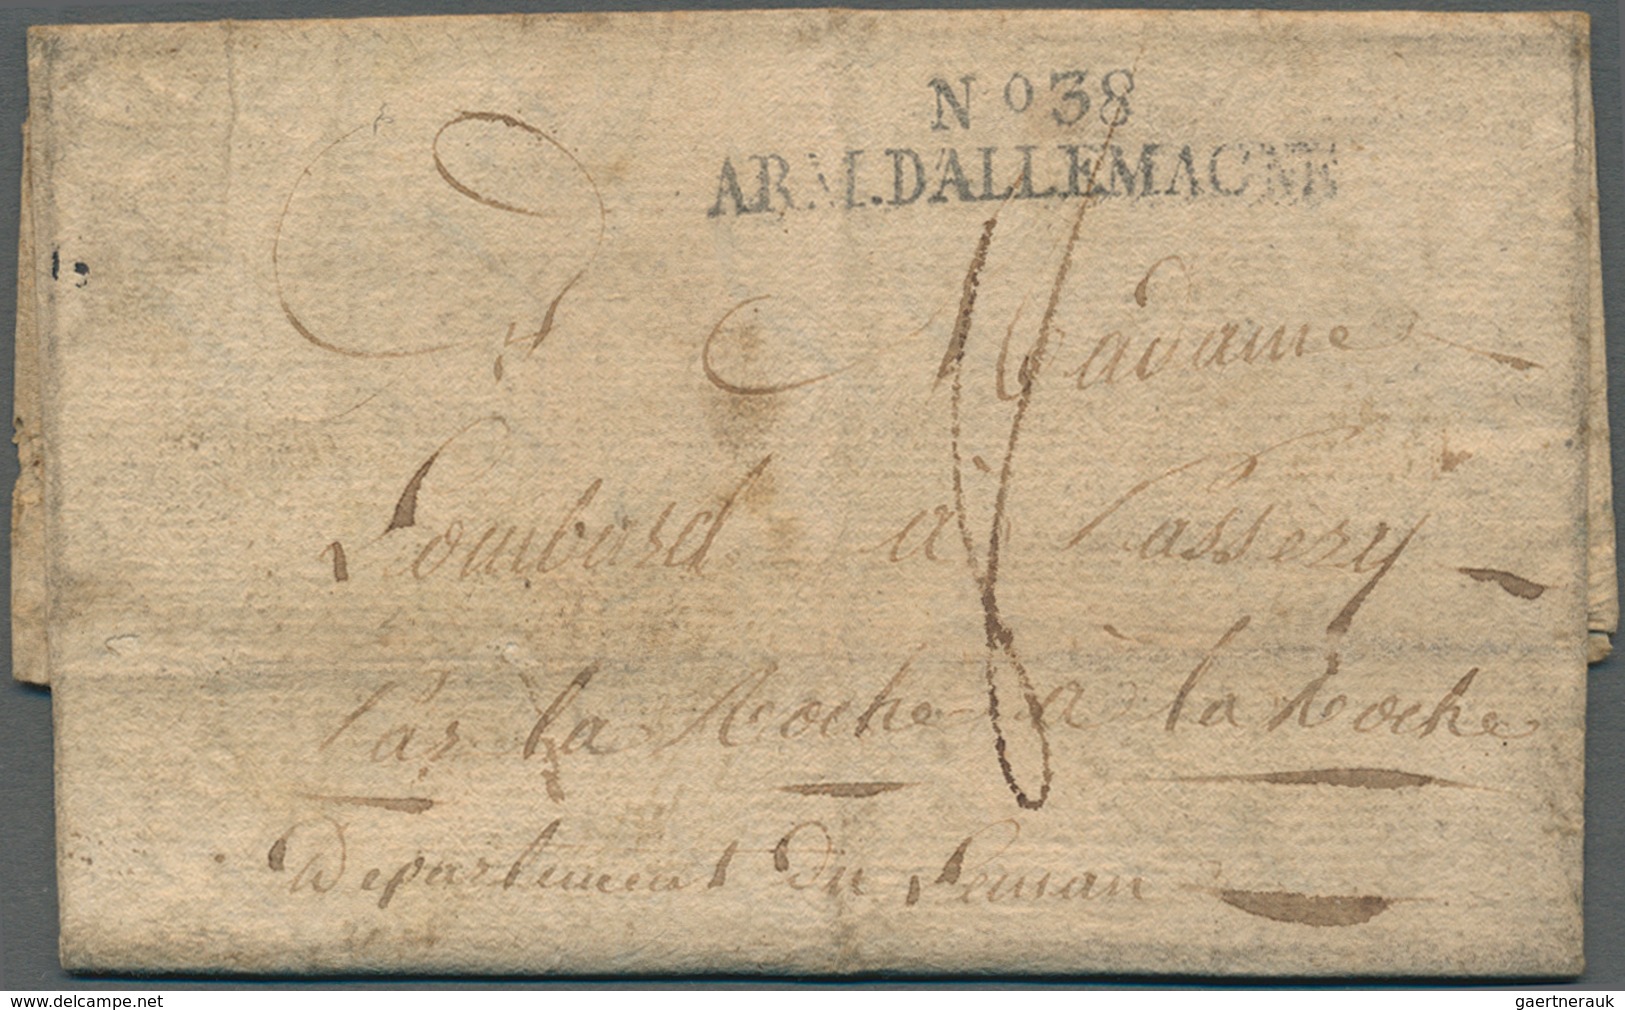 No 38
ARM.DALLEMAGNE
A Madame
Lombard à Passery
Par la Roche à la Roche
Departement Du Leman
www.delcampe.net
gaertnerauk